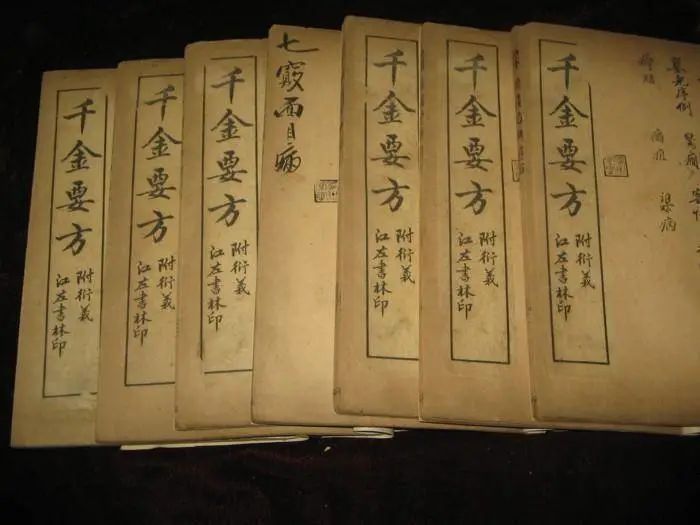 嬰兒序例
千金要方
附衍義
江左書林印
千金要方
附衍義
江左書林印
千金要方
附衍義
江左書林印
七竅面目病
千金要方
附衍義
江左書林印
千金要方
附衍義
江左書林印
千金要方
附衍義
江左書林印